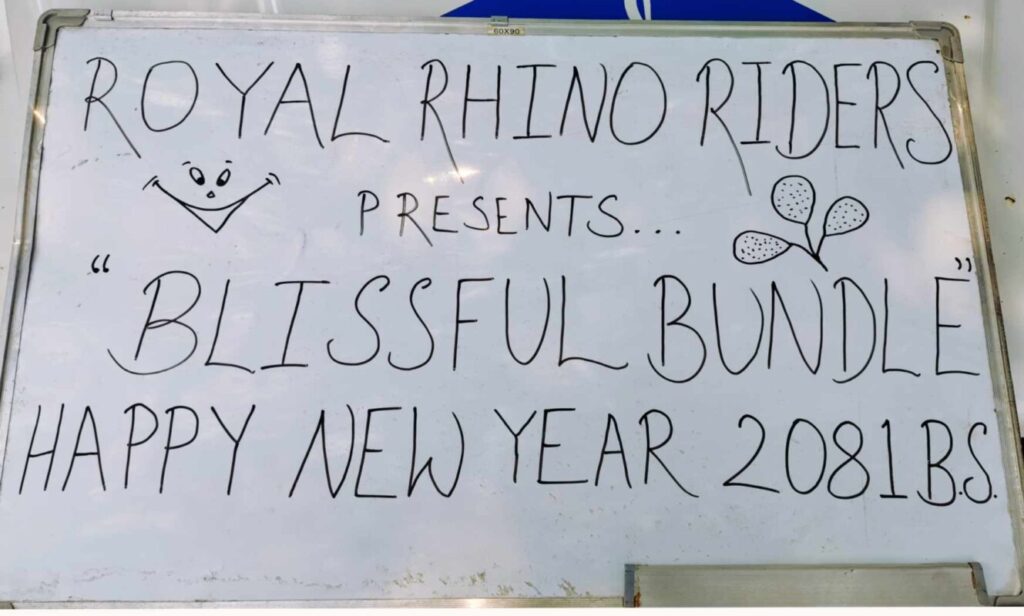 60X90
ROYAL RHINO RIDERS
PRESENTS...
"BLISSFUL BUNDLE"
HAPPY NEW YEAR 2081 B.S.